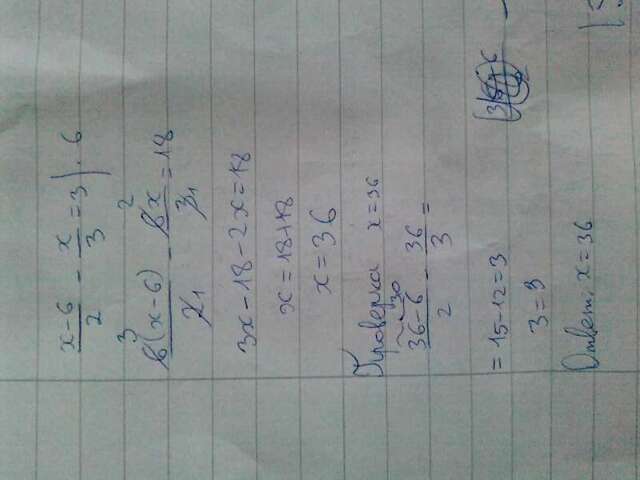 x-6/2 - x/3 = 3 | · 6
3 6(x-6)/2 1 - 2 6x/3 1 = 18
3x-18-2x=18
x=18+18
x=36
Проверка x=36
30
36-6/2 - 36/3 =
=15-12=3
3=3
Ответ: x=36